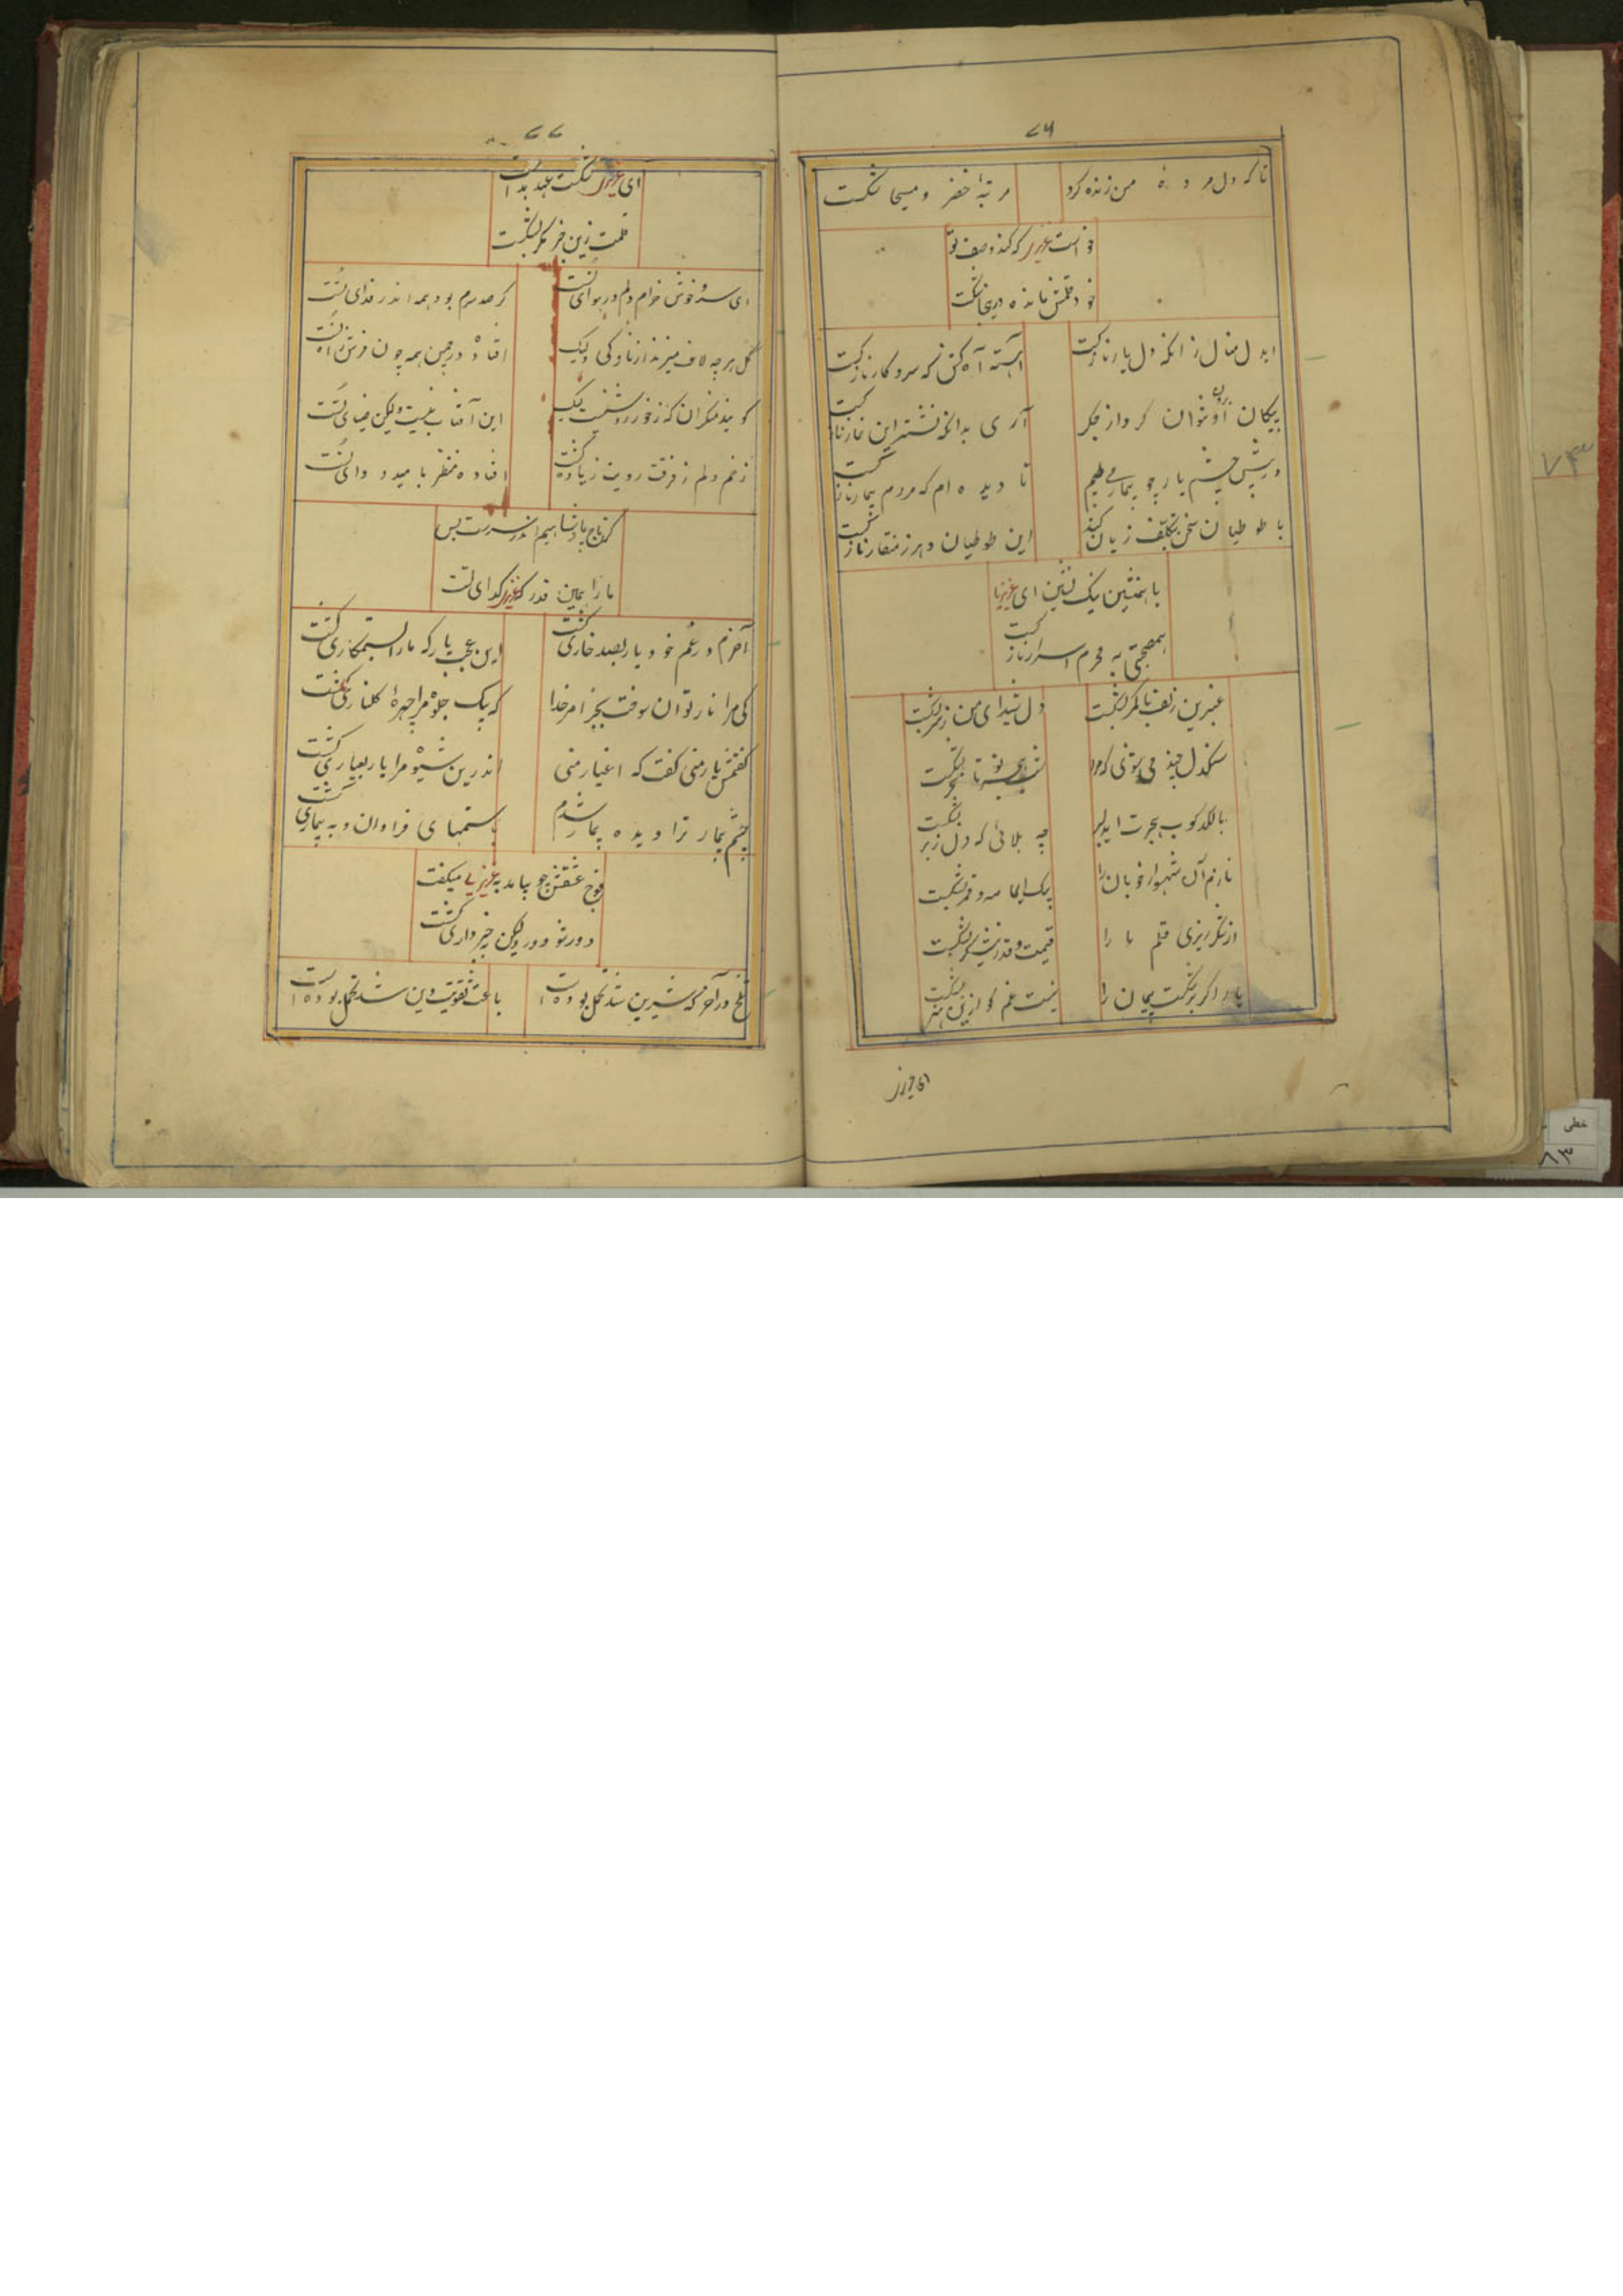 ۷۶
تا که دل مرده من زنده کرد
مرتبهٔ خضر و مسیحا شکست
خواست عزیز که کند وصف تو
خود قلمش مانده دریغا شکست
ایدل منال زانکه دل یار نازکست
آهسته آه کش که سر و کار نازکست
پیکان او توان کرد از جگر برون
آری بدانکه نشتر این خار نازکست
در پیش چشم یار چو بیمار می طپم
تا دیده ام که مردم بیمار نازکست
با طوطیان سخن بتکلف زیان کند
این طوطیان دهر ز منقار نازکست
با همنشین نیک نشین ای عزیز ما
همصحبتی به محرم اسرار نازکست
عنبرین زلف تا کمر بشکست
دل شیدای من ز سر بشکست
سنگدل چند می توی که مرا
تا بشکست
بالکدکوب هجرت ایدلبر
چه بلائی که دل ز بر بشکست
نازم آن شهسوار خوبان را
بیک ایما مه و قمر بشکست
از شکرریزی قلم ما را
قیمت و قدر نیشکر بشکست
یار اگر بشکست پیمان را
نیست غم کو ازین هنر بشکست
ای عزیز
۷۷
ای عزیز شکست عهد بد است
قلمت زین خبر مگر بشکست
ای سرو خوش خرام دلم در هوای تست
گر صد سرم بود همه اندر فدای تست
گل هر چه لاف میزند از نازکی ولیک
افتاده در چمن همه چون فرش راه تست
گویند منکران که ز خور روشنست لیک
این آفتاب نیست ولیکن ضیای تست
زخم دلم ز فرقت رویت زیاده گشت
افتاده منظر بامید دوای تست
گر تاج پادشاهیم اندر سرست بس
ما را همین قدر که عزیز گدای تست
آخرم در غم خود یار بصد خاری کشت
این عجب یار که ما را بستمکاری کشت
کی مرا نار توان سوخت بجز امر خدا
که بیک جلوه مرا چهرهٔ گلناری کشت
گفتمش یار منی گفت که اغیار منی
اندرین شیوه مرا یار بعیاری کشت
چشم بیمار ترا دیده بیمار شدم
باستمهای فراوان و به بیماری کشت
فوج عشقش چو بیامد به عزیزی میگفت
دور شو دور ولیکن خبرداری کشت
تلخ در آخر که شیرین شد تحمل بوده است
باعث تقویت دین شد تحمل بوده است
۷۳
خطی
۸۳